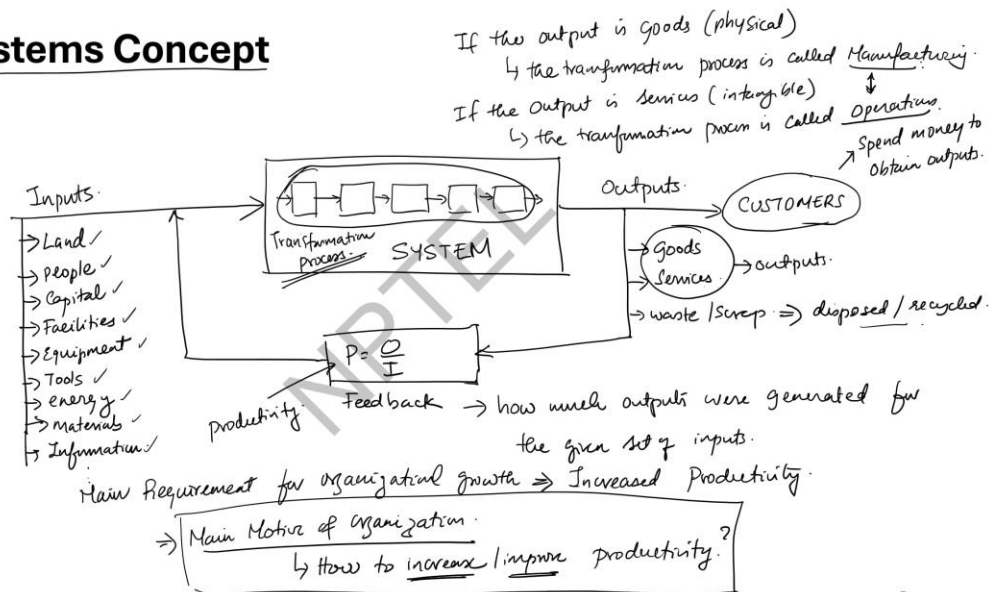 stems Concept
If the output is goods (physical)
↳ the transformation process is called Manufacturing.
If the output is services (intangible)
↳ the transformation process is called Operations.
Spend money to
obtain outputs.
Inputs.
→ Land ✓
→ People ✓
→ Capital ✓
→ Facilities ✓
→ Equipment ✓
→ Tools ✓
→ energy ✓
→ materials ✓
→ Information ✓
Transformation
process.
SYSTEM
Outputs.
CUSTOMERS
→ Goods
→ Services
→ outputs.
→ waste / Scrap ⇒ disposed / recycled.
P = O
I
productivity
Feedback → how much outputs were generated for
the given set of inputs.
Main Requirement for organizational growth ⇒ Increased Productivity.
⇒ Main Motive of organization.
↳ How to increase / improve productivity?
NPTEL